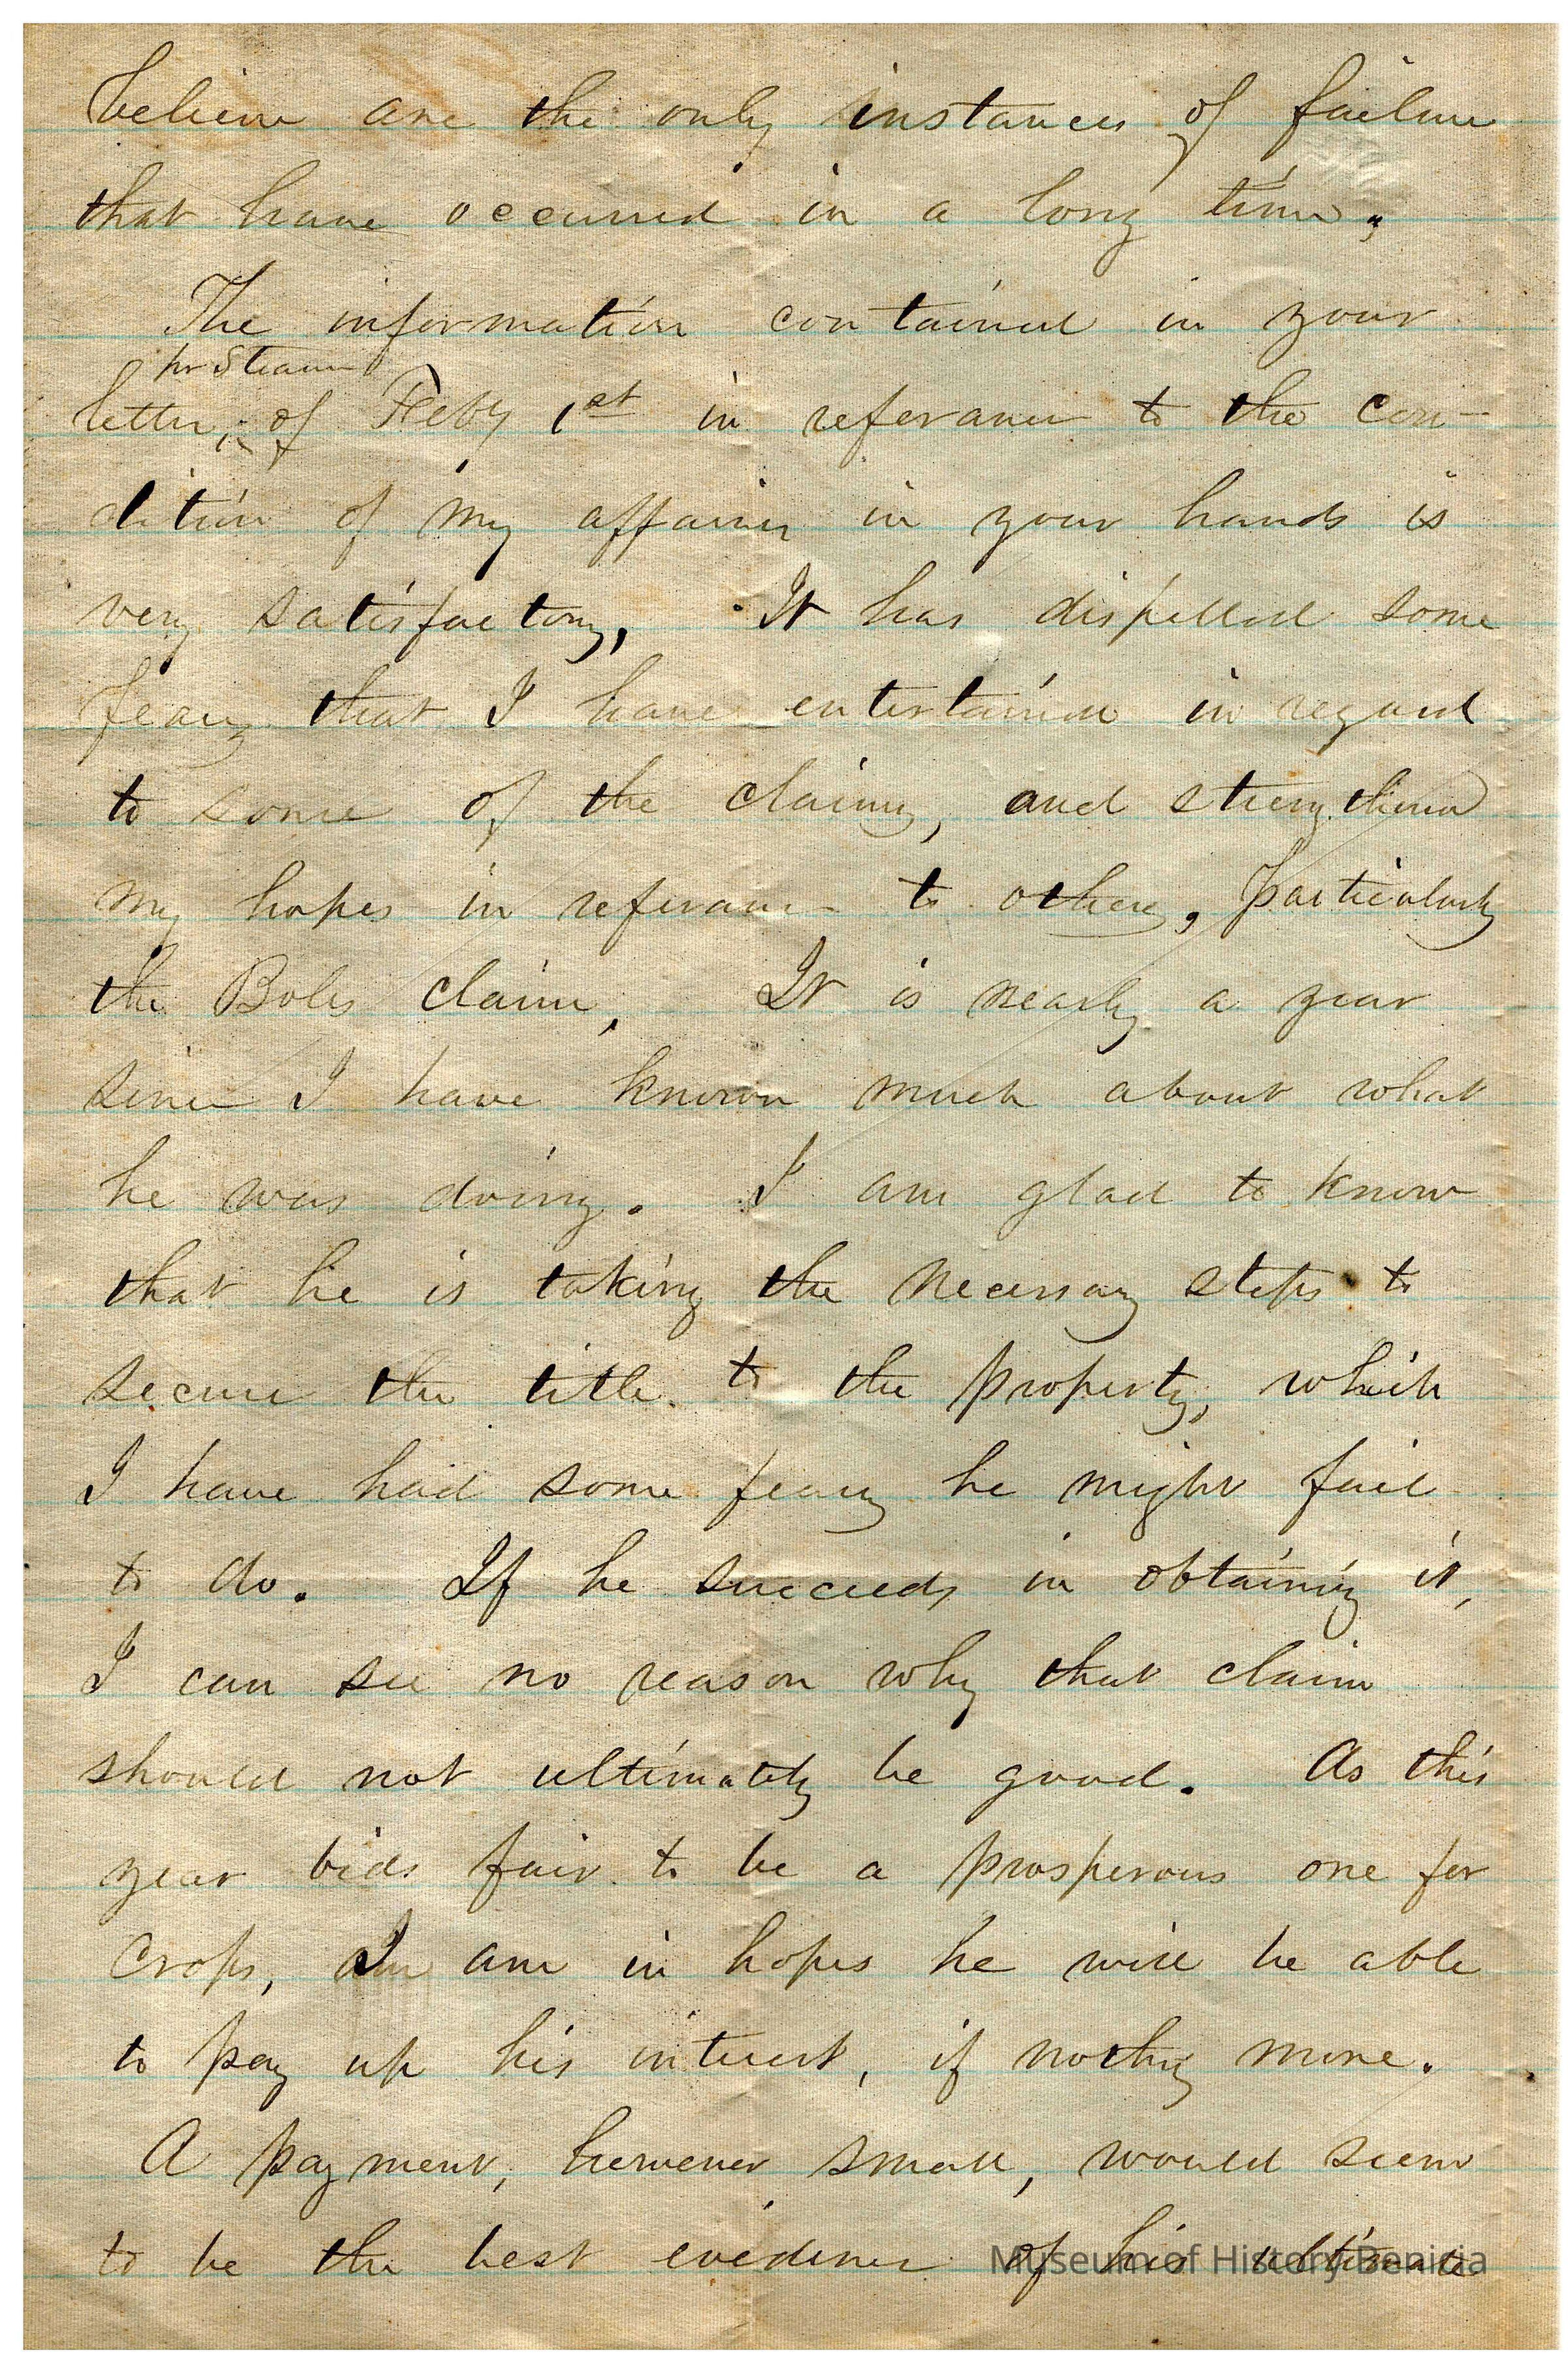 believe are the only instances of failure
that have occurred in a long time,
The information contained in your
pr Steam
letter, of Feby 1st in referance to the con-
dition of my affairs in your hands is
very satisfactory, It has dispelled some
fears that I have entertained in regard
to some of the claims, and strengthened
my hopes in referance to others, particularly
the Boles claim, It is nearly a year
since I have known much about what
he was doing. I am glad to know
that he is taking the necessary steps to
secure the title to the property, which
I have had some fears he might fail
to do. If he succeeds in obtaining it,
I can see no reason why that claim
should not ultimately be good. As this
year bids fair to be a prosperous one for
crops, I am in hopes he will be able
to pay up his interest, if nothing more.
A payment, however small, would seem
to be the best evidence of his ultimate
Museum of History Benicia